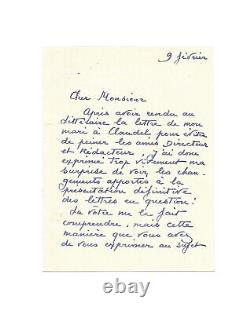 9 février
Cher Monsieur
Après avoir rendu au
littéraire la lettre de mon
mari à Claudel, pour éviter
de peiner les amis Directeur
et Rédacteur, j'ai donc
exprimé trop vivement ma
surprise de voir les chan-
gements apportés à la
présentation définitive
des lettres en question.
La vôtre me le fait
comprendre, mais cette
manière que vous avez
de vous exprimer au sujet